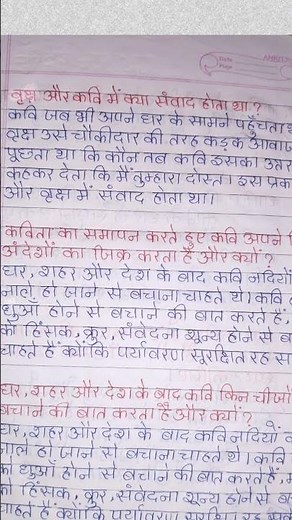 वृक्ष और कवि में क्या संवाद होता था ?
कवि जब भी अपने घर के सामने पहुँचता
वृक्ष उसे चौकीदार की तरह कड़क आवाज
पूछता था कि कौन तब कवि इसका उत्तर
कहकर देता कि मैं तुम्हारा दोस्त। इस प्रक
और वृक्ष में संवाद होता था।
कविता का समापन करते हुए कवि अपने
अंदेशों का जिक्र करता है और क्यों ?
घर, शहर और देश के बाद कवि नदियों
नाले हो जाने से बचाना चाहते थे। कवि
धुआँ होने से बचाने की बात करते हैं,
को हिंसक, क्रूर, संवेदना शून्य होने से ब
चाहते हैं क्योंकि पर्यावरण सुरक्षित रह स
घर, शहर और देश के बाद कवि किन चीजों
बचाने की बात करता है और क्यों ?
घर, शहर और देश के बाद कवि नदियों
नाले हो जाने से बचाना चाहते थे। कवि
को धुआँ होने से बचाने की बात करते हैं,
को हिंसक, क्रूर, संवेदना शून्य होने से ब
चाहते हैं क्योंकि पर्यावरण